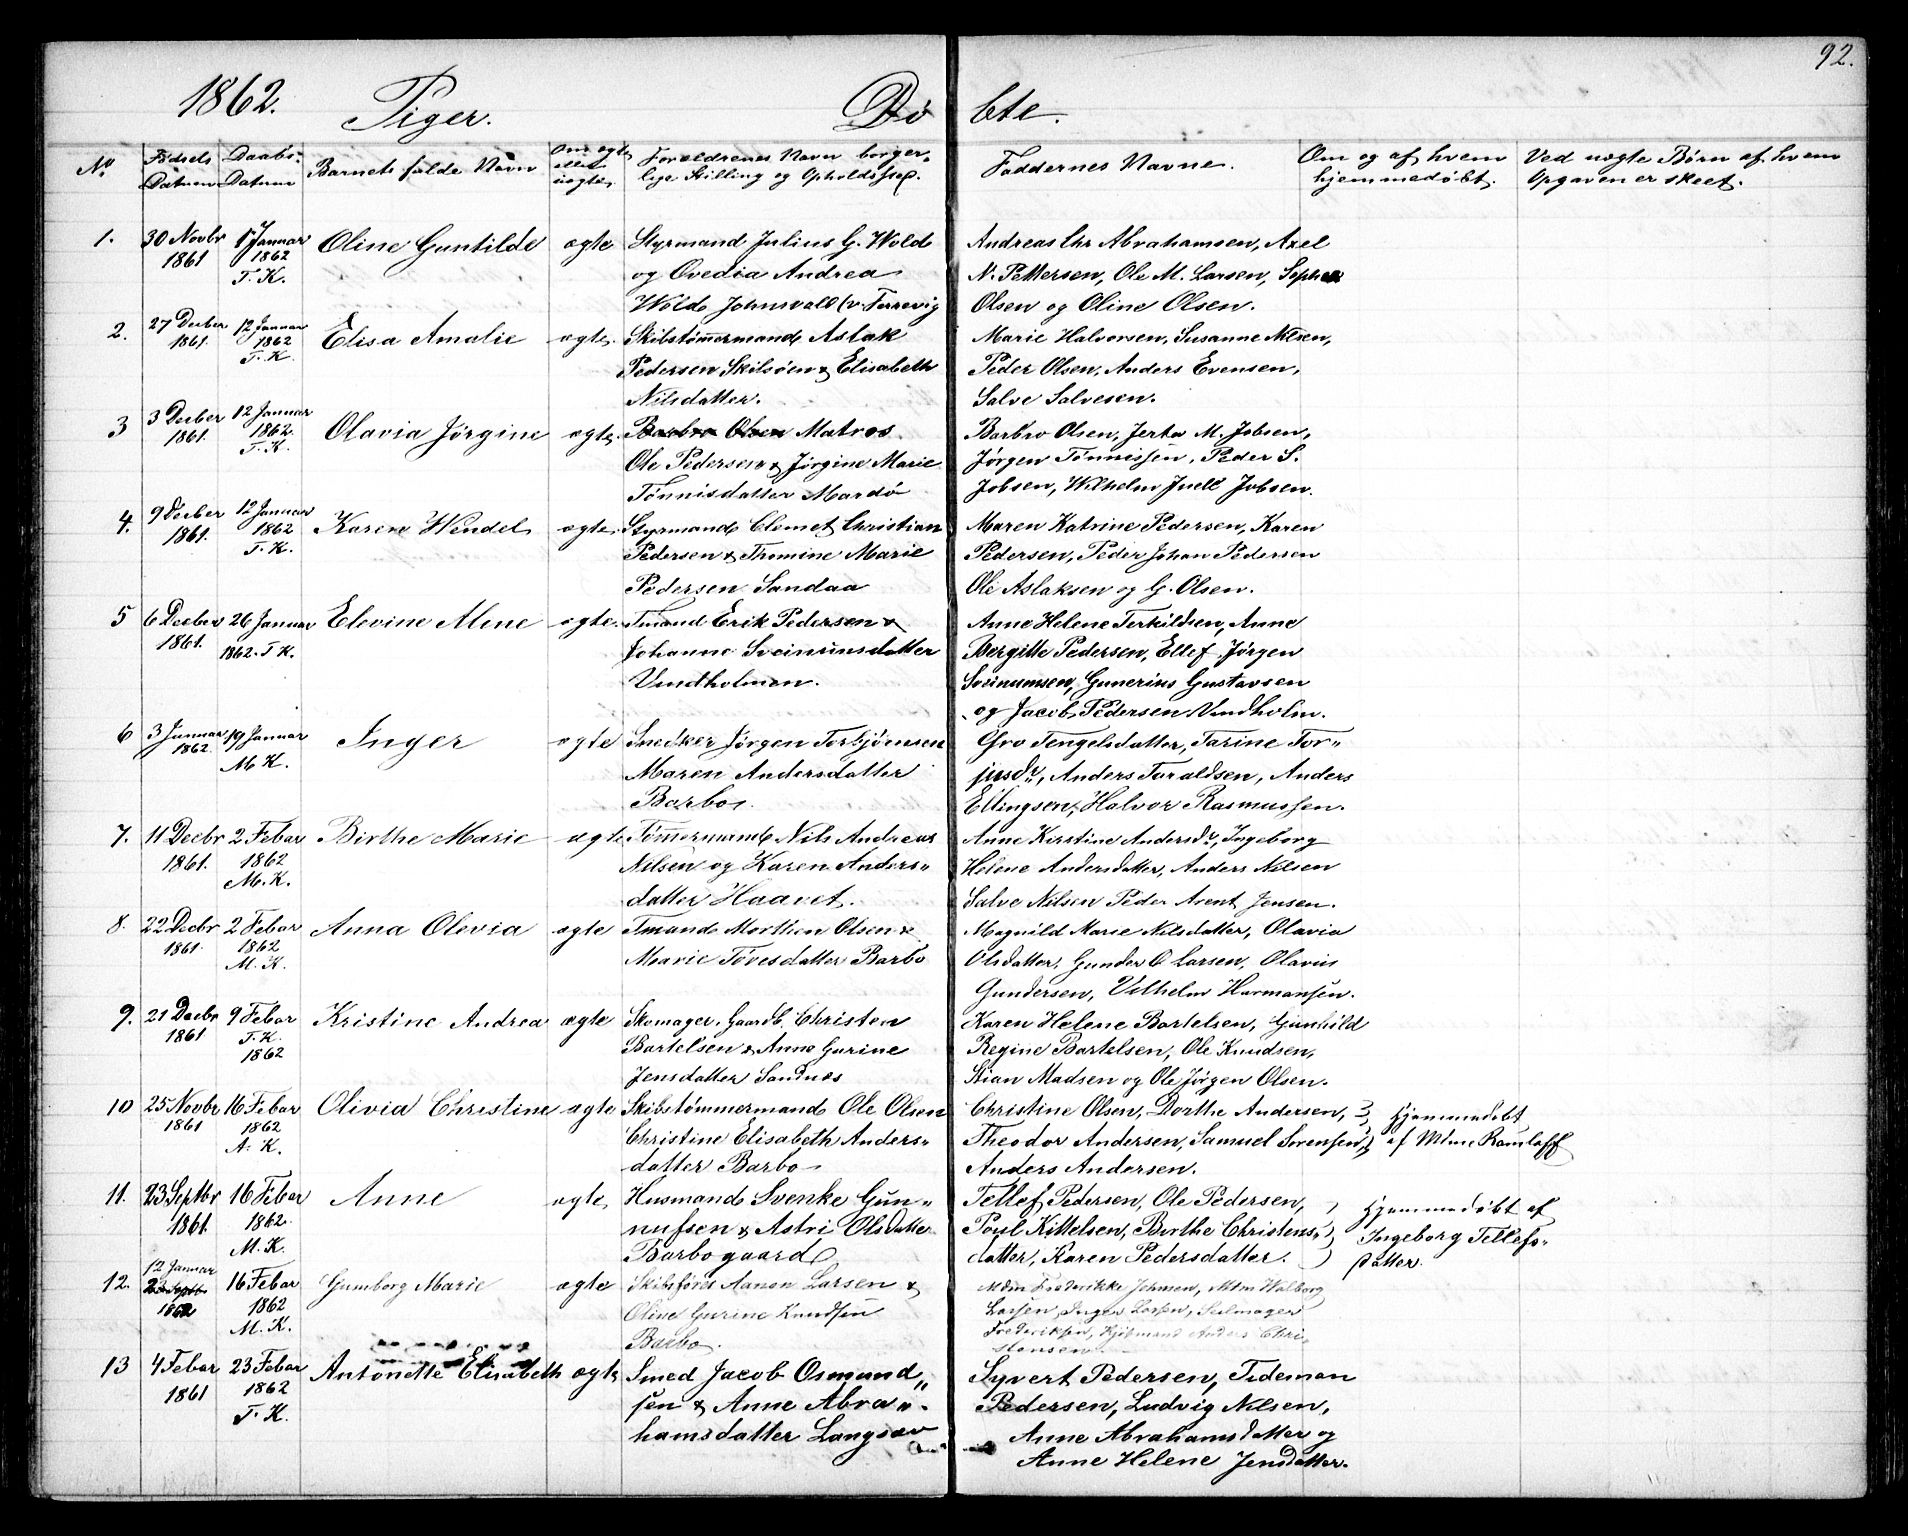 92.
1862. Piger. Dö bte.
No. Fødsels Datum Daabs- Datum Barnets fulde Navn Om ægte eller uægte Forældrenes Navn borger- lige Stilling og Opholdssted. Faddernes Navne. Om og af hvem hjemmedøbt. Ved uægte Børn af hvem Opgaven er skeet.
1. 30 Novbr 1861 1 Januar 1862 T. K. Oline Guntilde ægte Styrmand Julius G. Wold
og Ovedia Andrea
Wold Johnsvold v. Terrevig
Andreas Chr Abrahamsen, Axel
N. Pettersen, Ole M. Larsen, Sophie
Olsen og Oline Olsen.
2. 27 Decber 1861. 12 Januar 1862 T. K. Elisa Amalie ægte. Skibstømmermand Aslak
Pedersen Skilsöen & Elisabeth
Nilsdatter.
Marie Halvorsen, Susanne Nilsen,
Peder Olsen, Anders Evensen,
Salve Salvesen.
3 3 Decber 1861. 12 Januar 1862. T. K. Olavia Jörgine ægte. Barbro Olsen Matros
Ole Pedersen & Jörgine Marie
Tönnisdatter Mardö
Barbro Olsen, Jerta M. Jobsen,
Jörgen Tönnissen, Peder S.
Jobsen, Wilhelm Juell Jobsen.
4. 9 Decber 1861. 12 Januar 1862 T. K. Karen Wendel ægte. Styrmand Clemet Christian
Pedersen & Thomine Marie
Pedersen Sandaa
Maren Katrine Pedersen, Karen
Pedersen, Peder Johan Pedersen
Ole Aslaksen og G. Olsen.
5 6 Decber 1861. 26 Januar 1862. T K. Elevine Alene ægte. Tmand Erik Pedersen &
Johanne Sveinunsdatter
Vindholmen.
Anne Helene Terkildsen, Anne
Bergitte Pedersen, Ellef Jörgen
Sveinumsen, Gunerius Gustavsen
og Jacob Pedersen Vindholm.
6 3 Januar 1862. 19 Januar M K. Inger ægte Snedker Jörgen Torbjörnsen
Maren Andersdatter
Barbo.
Gro Tengelsdatter, Tarine Tor-
jusdr, Anders Taraldsen, Anders
Ellingsen, Halvor Rasmussen.
7. 11 Decbr 1861. 2 Febar 1862 M. K. Birthe Marie ægte Tømmermand Nils Andreas
Nilsen og Karen Anders-
datter Haavet.
Anne Kirstine Andersdr, Ingeborg
Helene Andersdatter, Anders Nilsen
Salve Nilsen Peder Arent Jensen.
8. 22 Decbr 1861. 2 Febar 1862 M. K. Anna Olevia ægte Tmand Morthen Olsen &
Marie Tovesdatter Barbo
Magnild Marie Nilsdatter, Olavia
Olsdatter, Gunder O Larsen, Olavius
Gundersen, Vilhelm Hermansen.
9. 21 Decbr 1861 9 Febar T. K. 1862 Kristine Andrea ægte Skomager. Gaardb. Christen
Bartelsen & Anne Gurine
Jensdatter Sandnes
Karen Helene Bartelsen, Gunhild
Regine Bartelsen, Ole Knudsen,
Stian Madsen og Ole Jörgen Olsen.
10 25 Novbr 1861 16 Febar 1862 A. K. Olivia Christine ægte Skibstømmermand Ole Olsen
Christine Elisabeth Anders-
datter Barbo
Christine Olsen, Dorthe Andersen,
Theodor Andersen, Samuel Sørensen,
Anders Andersen.
Hjemmedøbt
af Mdme Ramlaff
11. 23 Septbr 1861. 16 Febar 1862. M. K. Anne ægte Husmand Svenke Gun-
nufsen & Astri Olsdatter
Barbogaard
Tellef Pedersen, Ole Pedersen,
Poul Kittelsen, Berthe Christens-
datter, Karen Pedersdatter.
Hjemmedøbt af
Ingeborg Tellefs-
datter.
12. 12 Januar 23 Septbr 1862 16 Febar 1862 M. K. Gumborg Marie ægte Skibsförer Aanon Larsen &
Oline Gurine Knudsen
Barbo.
Mdm Frederikke Johnsen, Mdm Walborg
Larsen, Inger Larsen, Seilmager
Frederiksen, Kjöbmand Anders Chri-
stensen.
13 4 Febar 1861 23 Febar 1862 T. K. Antonette Elisabeth ægte Smed Jacob Osmund-
sen & Anne Abra-
hamsdatter Langsæv
Syvert Pedersen, Tideman
Pedersen, Ludvig Nilsen,
Anne Abrahamsdatter og
Anne Helene Jensdatter.